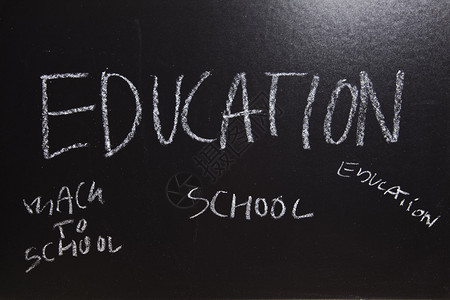 EDUCATION
MACK
TO
SCHOOL
SCHOOL
EDUCATION